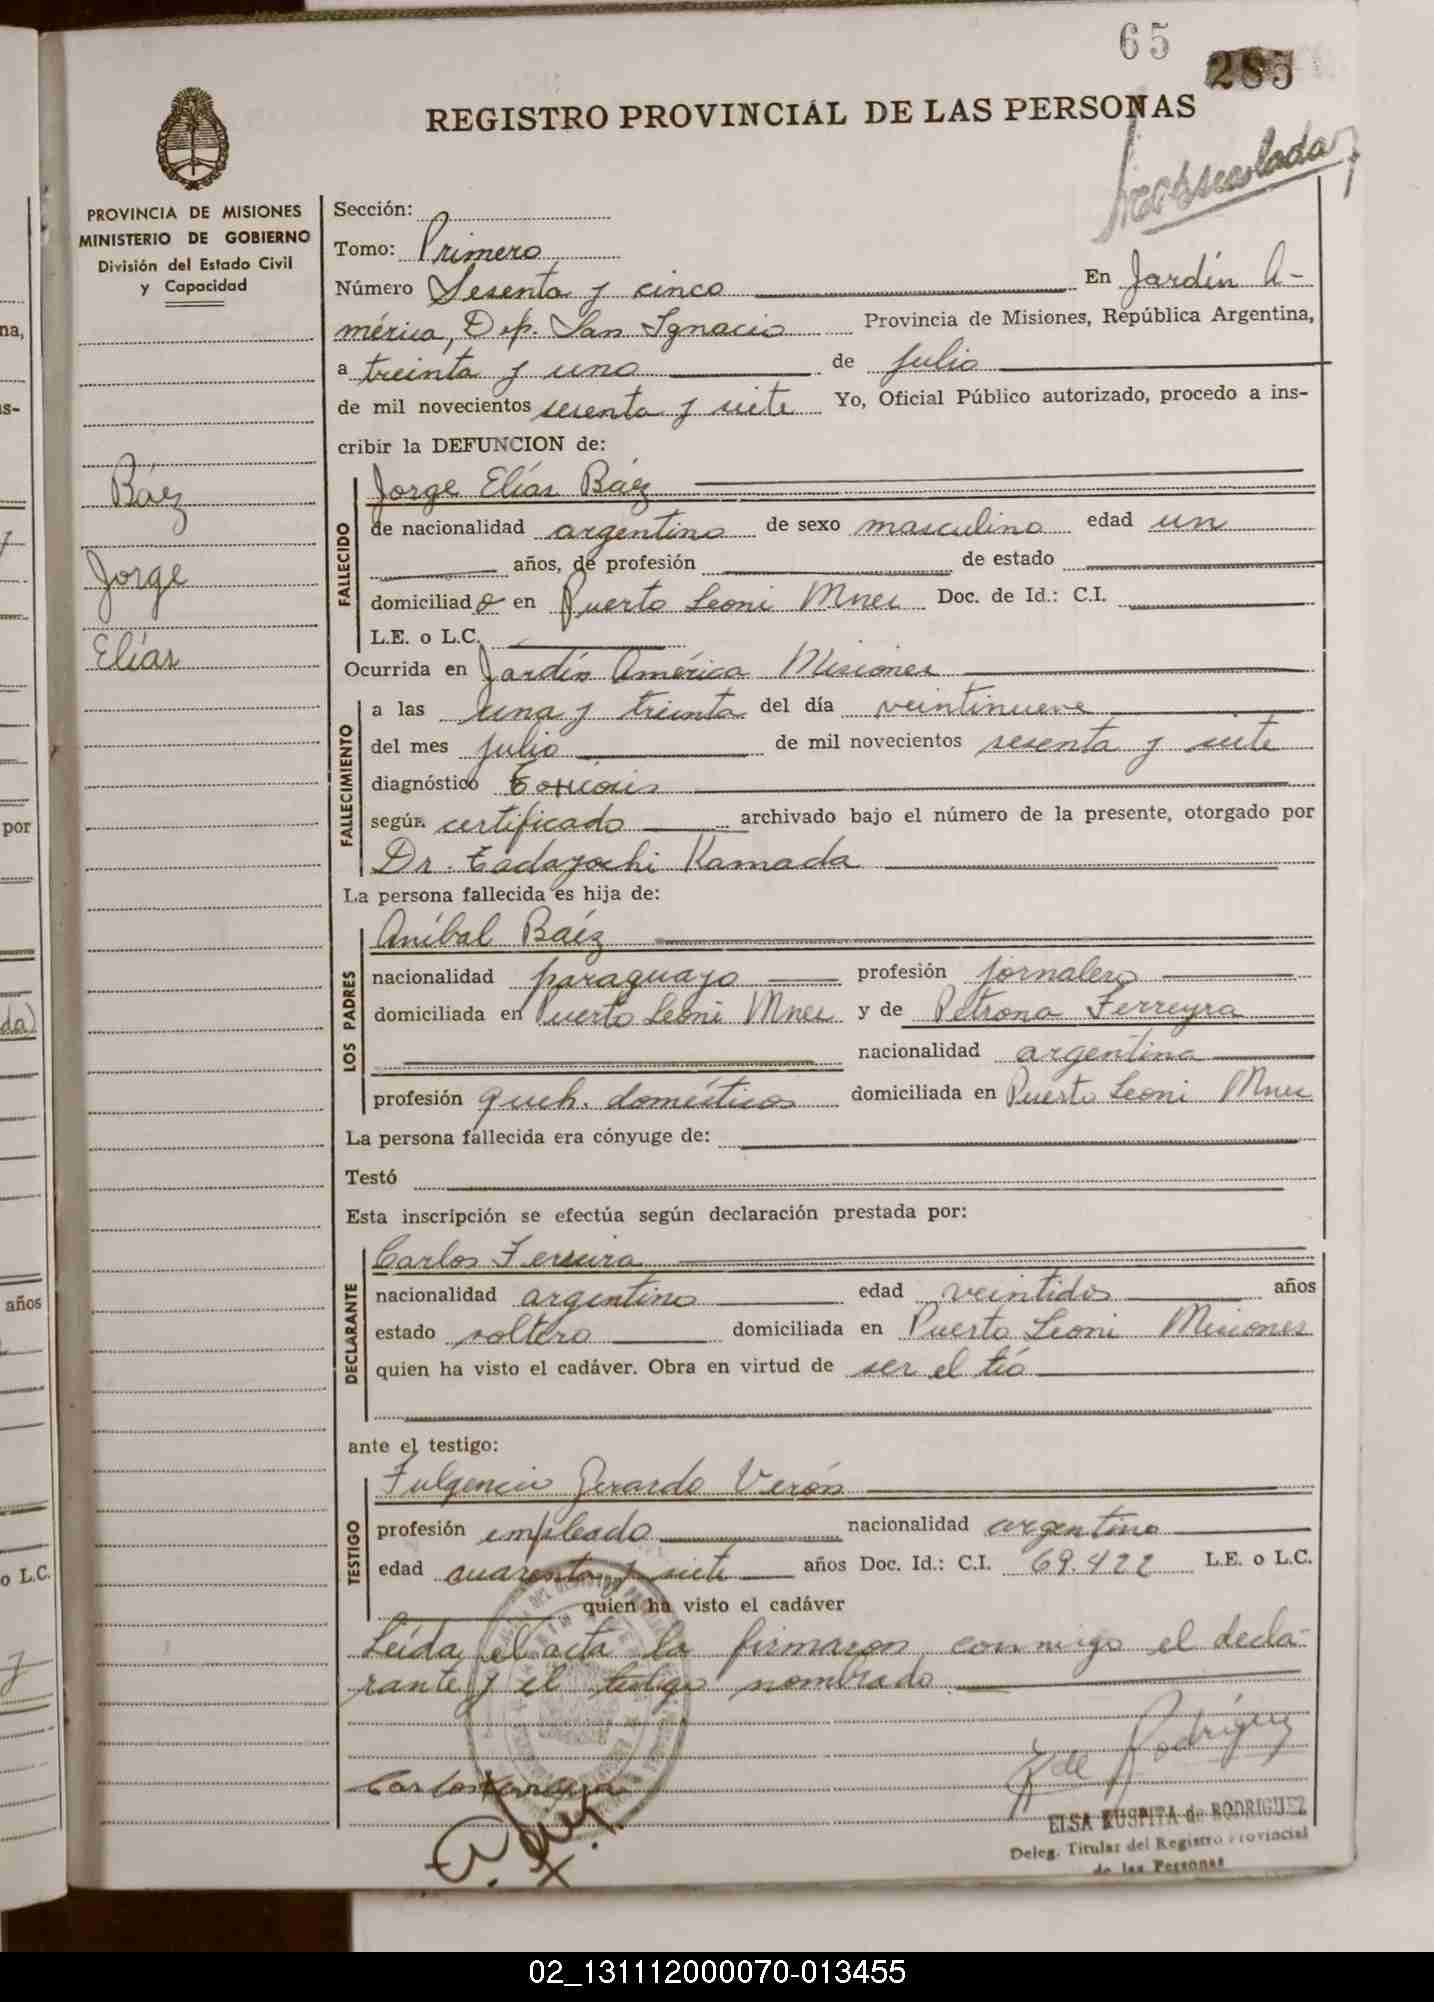 65
285
REGISTRO PROVINCIAL DE LAS PERSONAS
PROVINCIA DE MISIONES
MINISTERIO DE GOBIERNO
División del Estado Civil
y Capacidad
Báez
Jorge
Elías
Sección:
Tomo: Primero
Número Sesenta y cinco En Jardín A-
mérica, Dep. San Ignacio Provincia de Misiones, República Argentina,
a treinta y uno de julio
de mil novecientos sesenta y siete Yo, Oficial Público autorizado, procedo a ins-
cribir la DEFUNCION de:
FALLECIDO
Jorge Elías Báez
de nacionalidad argentino de sexo masculino edad un
años, de profesión de estado
domiciliado en Puerto Leoni Mnes Doc. de Id.: C.I.
L.E. o L.C.
Ocurrida en Jardín América Misiones
FALLECIMIENTO
a las una y treinta del día veintinueve
del mes julio de mil novecientos sesenta y siete
diagnóstico Toxicosis
según certificado archivado bajo el número de la presente, otorgado por
Dr. Tadayochi Kamada
La persona fallecida es hija de:
LOS PADRES
Aníbal Báez
nacionalidad paraguayo profesión jornalero
domiciliada en Puerto Leoni Mnes y de Petrona Ferreyra
nacionalidad argentina
profesión queh. domésticos domiciliada en Puerto Leoni Mnes
La persona fallecida era cónyuge de:
Testó
Esta inscripción se efectúa según declaración prestada por:
DECLARANTE
Carlos Ferreira
nacionalidad argentino edad veintidos años
estado soltero domiciliada en Puerto Leoni Misiones
quien ha visto el cadáver. Obra en virtud de ser el tío
ante el testigo:
TESTIGO
Fulgencio Gerardo Verón
profesión empleado nacionalidad argentino
edad cuarenta y siete años Doc. Id.: C.I. 69.422 L.E. o L.C.
quien ha visto el cadáver
Leída el acta la firmaron conmigo el decla-
rante y el testigo nombrado
E de Rodríguez
Carlos Ferreira
ELSA de RODRIGUEZ
Deleg. Titular del Registro Provincial
de las Personas
na,
s-
por
da)
años
o L.C.
02_131112000070-013455